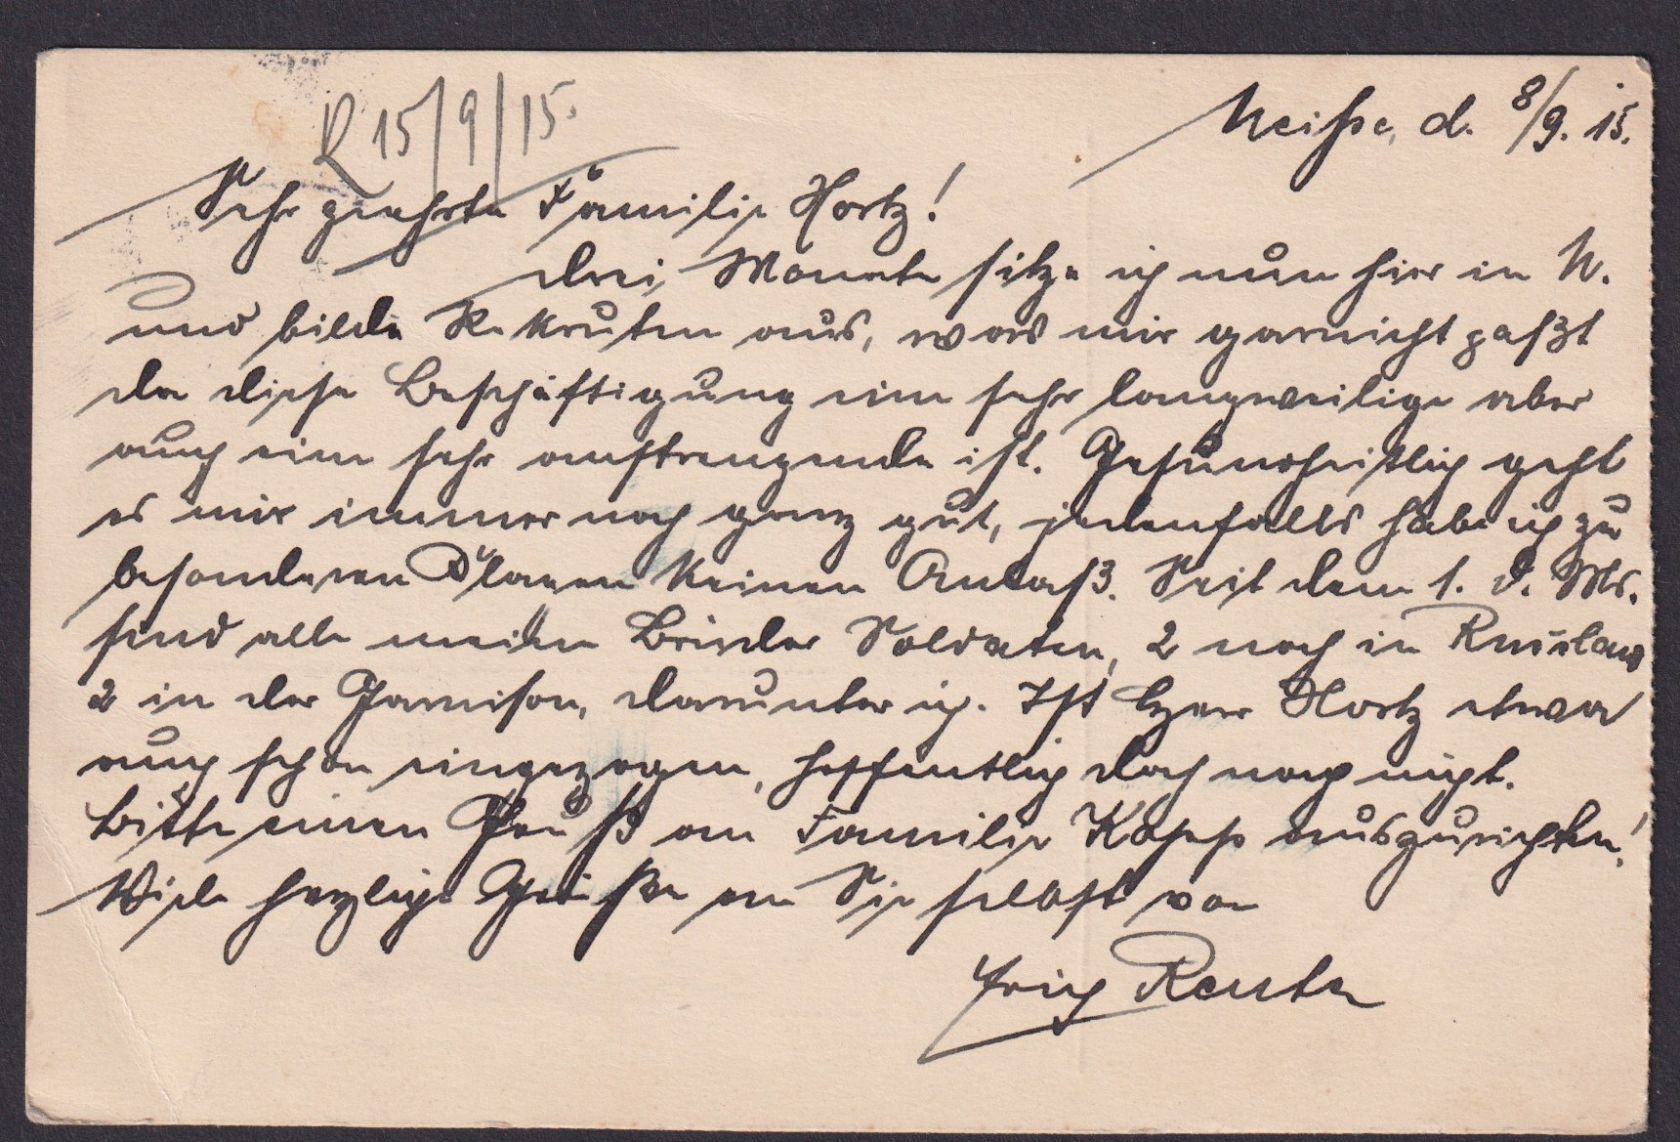 R 15/9/15.
Neiße, d. 8/9. 15.
Sehr geehrte Familie Hortz!
Drei Monate sitze ich nun hier in N.
und bilde Rekruten aus, was mir garnicht paßt
da diese Beschäftigung eine sehr langweilige aber
auch eine sehr anstrengende ist. Gesundheitlich geht
es mir immer noch ganz gut, jedenfalls habe ich zu
besonderen Klagen keinen Anlaß. Seit dem 1. d. Mts.
sind alle meine Brüder Soldaten, 2 noch in Russland
2 in der Garnison, darunter ich. Ist Herr Hortz etwa
auch schon eingezogen, hoffentlich doch noch nicht.
Bitte einen Gruß an Familie Kopp auszurichten!
Viele herzliche Grüße an Sie selbst von
Erich